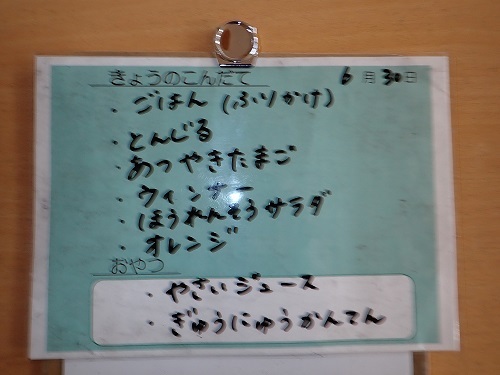 きょうのこんだて 6月30日
・ごはん(ふりかけ)
・とんじる
・あつやきたまご
・ウィンナー
・ほうれんそうサラダ
・オレンジ
おやつ
・やさいジュース
・ぎゅうにゅうかんてん